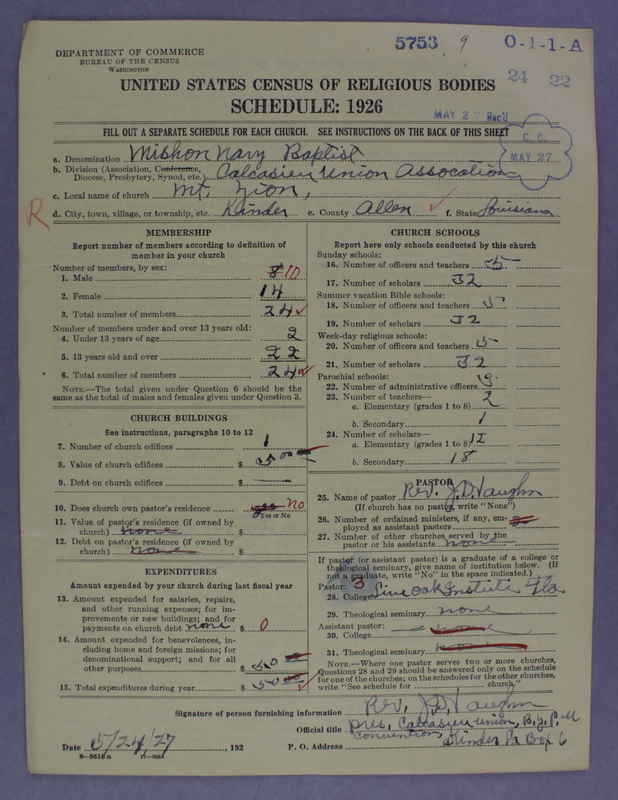 5753 9 O-1-1-A
DEPARTMENT OF COMMERCE
BUREAU OF THE CENSUS
WASHINGTON
24 22
UNITED STATES CENSUS OF RELIGIOUS BODIES
SCHEDULE: 1926
MAY 27 Rec'd
FILL OUT A SEPARATE SCHEDULE FOR EACH CHURCH. SEE INSTRUCTIONS ON THE BACK OF THIS SHEET
C. C.
MAY 27
a. Denomination Mishon nary Baptist
b. Division (Association, Conference, Diocese, Presbytery, Synod, etc.) Calcasieu Union Assocation
c. Local name of church Mt. Zion,
R
d. City, town, village, or township, etc. Kinder e. County Allen ✓ f. State Louisiana
MEMBERSHIP
Report number of members according to definition of
member in your church
Number of members, by sex:
1. Male 8 10
2. Female 14
3. Total number of members 24 ✓
Number of members under and over 13 years old:
4. Under 13 years of age 2
5. 13 years old and over 22
6. Total number of members 24 ✓
NOTE.—The total given under Question 6 should be the
same as the total of males and females given under Question 3.
CHURCH BUILDINGS
See instructions, paragraphs 10 to 12
7. Number of church edifices 1
8. Value of church edifices $ 500
9. Debt on church edifices $ —
10. Does church own pastor's residence yes no
Yes or No
11. Value of pastor's residence (if owned by
church) none $
12. Debt on pastor's residence (if owned by
church) none $
EXPENDITURES
Amount expended by your church during last fiscal year
13. Amount expended for salaries, repairs,
and other running expenses; for im-
provements or new buildings; and for
payments on church debt none $ 0
14. Amount expended for benevolences, in-
cluding home and foreign missions; for
denominational support; and for all
other purposes $ 50
15. Total expenditures during year $ 50 ✓
CHURCH SCHOOLS
Report here only schools conducted by this church
Sunday schools:
16. Number of officers and teachers 5
17. Number of scholars 32
Summer vacation Bible schools:
18. Number of officers and teachers 5
19. Number of scholars 32
Week-day religious schools:
20. Number of officers and teachers 5
21. Number of scholars 32
Parochial schools:
22. Number of administrative officers
23. Number of teachers—
a. Elementary (grades 1 to 8) 2
b. Secondary 1
24. Number of scholars—
a. Elementary (grades 1 to 8)
b. Secondary 18
PASTOR
25. Name of pastor Rev. J. D. Vaughn
(If church has no pastor, write "None")
26. Number of ordained ministers, if any, em-
ployed as assistant pastors
27. Number of other churches served by the
pastor or his assistants none
If pastor (or assistant pastor) is a graduate of a college or
theological seminary, give name of institution below. (If
not a graduate, write "No" in the space indicated.)
Pastor: 3
28. College Live oak Instute Fla
29. Theological seminary none
Assistant pastor:
30. College none
31. Theological seminary none
NOTE.—Where one pastor serves two or more churches,
Questions 28 and 29 should be answered only on the schedule
for one of the churches; on the schedules for the other churches,
write "See schedule for church."
Signature of person furnishing information Rev. J. D. Vaughn
Official title pres. Calcasieu union, B.Y.P.U
convention,
Date 5/24/27, 192 P. O. Address Kinder La Box 6
8—5519a 11—9051